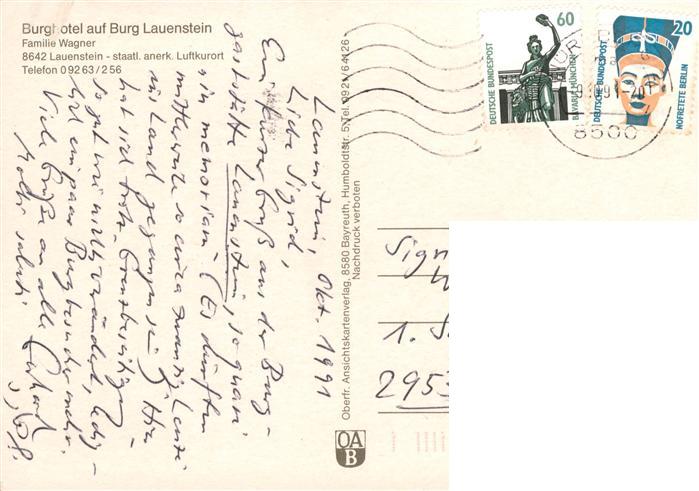 Burghotel auf Burg Lauenstein
Familie Wagner
8642 Lauenstein - staatl. anerk. Luftkurort
Telefon 09263/256
Lauenstein, Okt. 1991
Liebe Sigrid,
Ein kurzer Gruß aus der Burg-
gaststätte Lauenstein, so quasi
in memoriam - (Es dürften
mittlerweile so circa zwanzig Lenze
ins Land gegangen sein). Hier
hat sich trotz Grenzbeseitigung
so gut wie nichts verändert, ledig-
lich ein paar Burgbesucher mehr.
Viele Grüße an alle
Oberfr. Ansichtskartenverlag, 8580 Bayreuth, Humboldtstr. 5, Tel. 0921/64126
Nachdruck verboten
OA
B
60
DEUTSCHE BUNDESPOST
BAVARIA MÜNCHEN
20
DEUTSCHE BUNDESPOST
NOFRETETE BERLIN
8500
Sign
1. S
2953